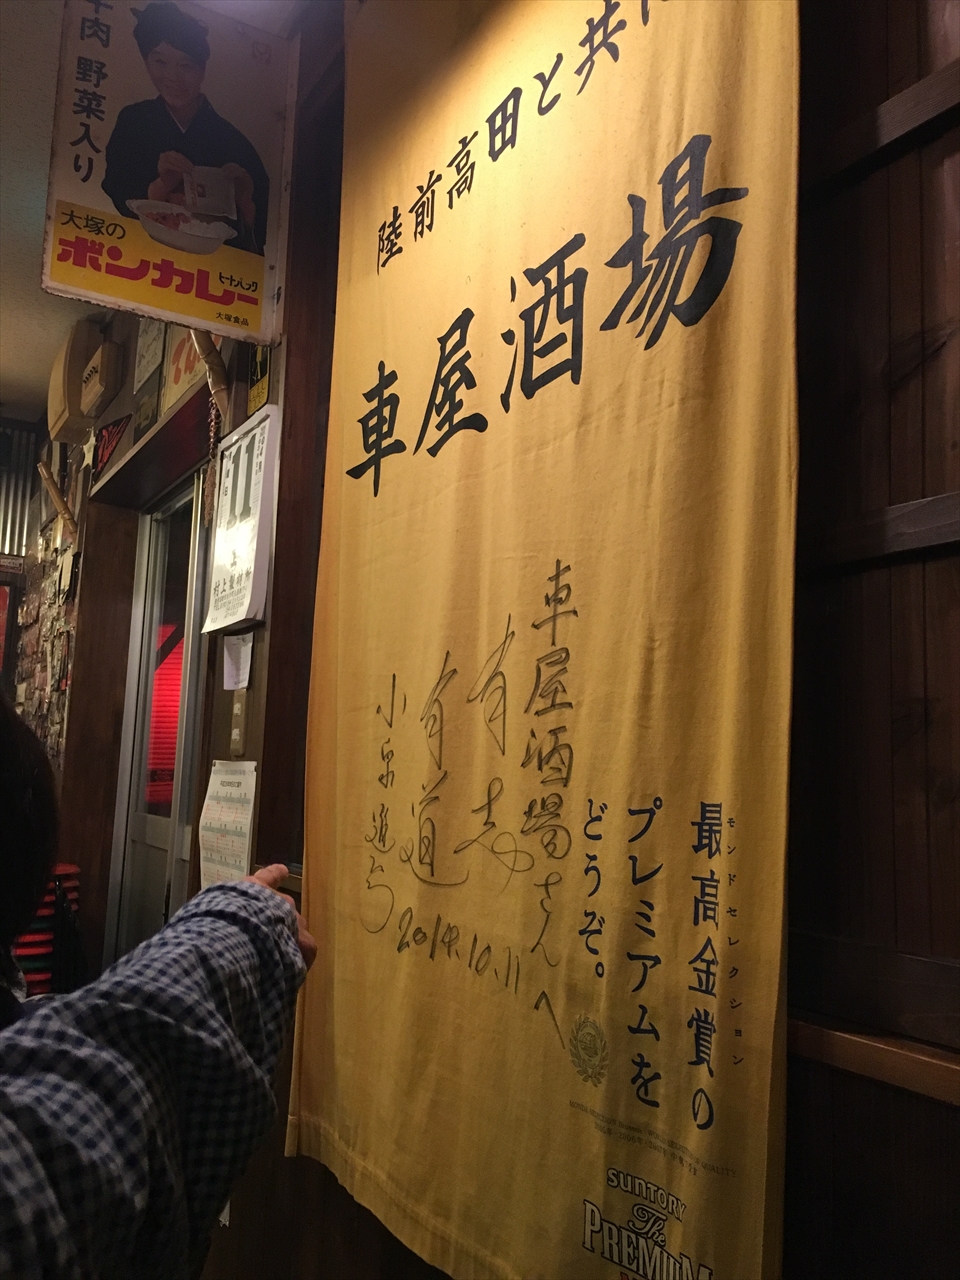 牛肉 野菜入り
大塚の
ボンカレー
ヒートパック
大塚食品
陸前高田と共に
車屋酒場
11
村上製材所
車屋酒場さんへ
有志
有道
小泉進次郎
2014.10.11
モンドセレクション
最高金賞の
プレミアムを
どうぞ。
SUNTORY
The
PREMIUM